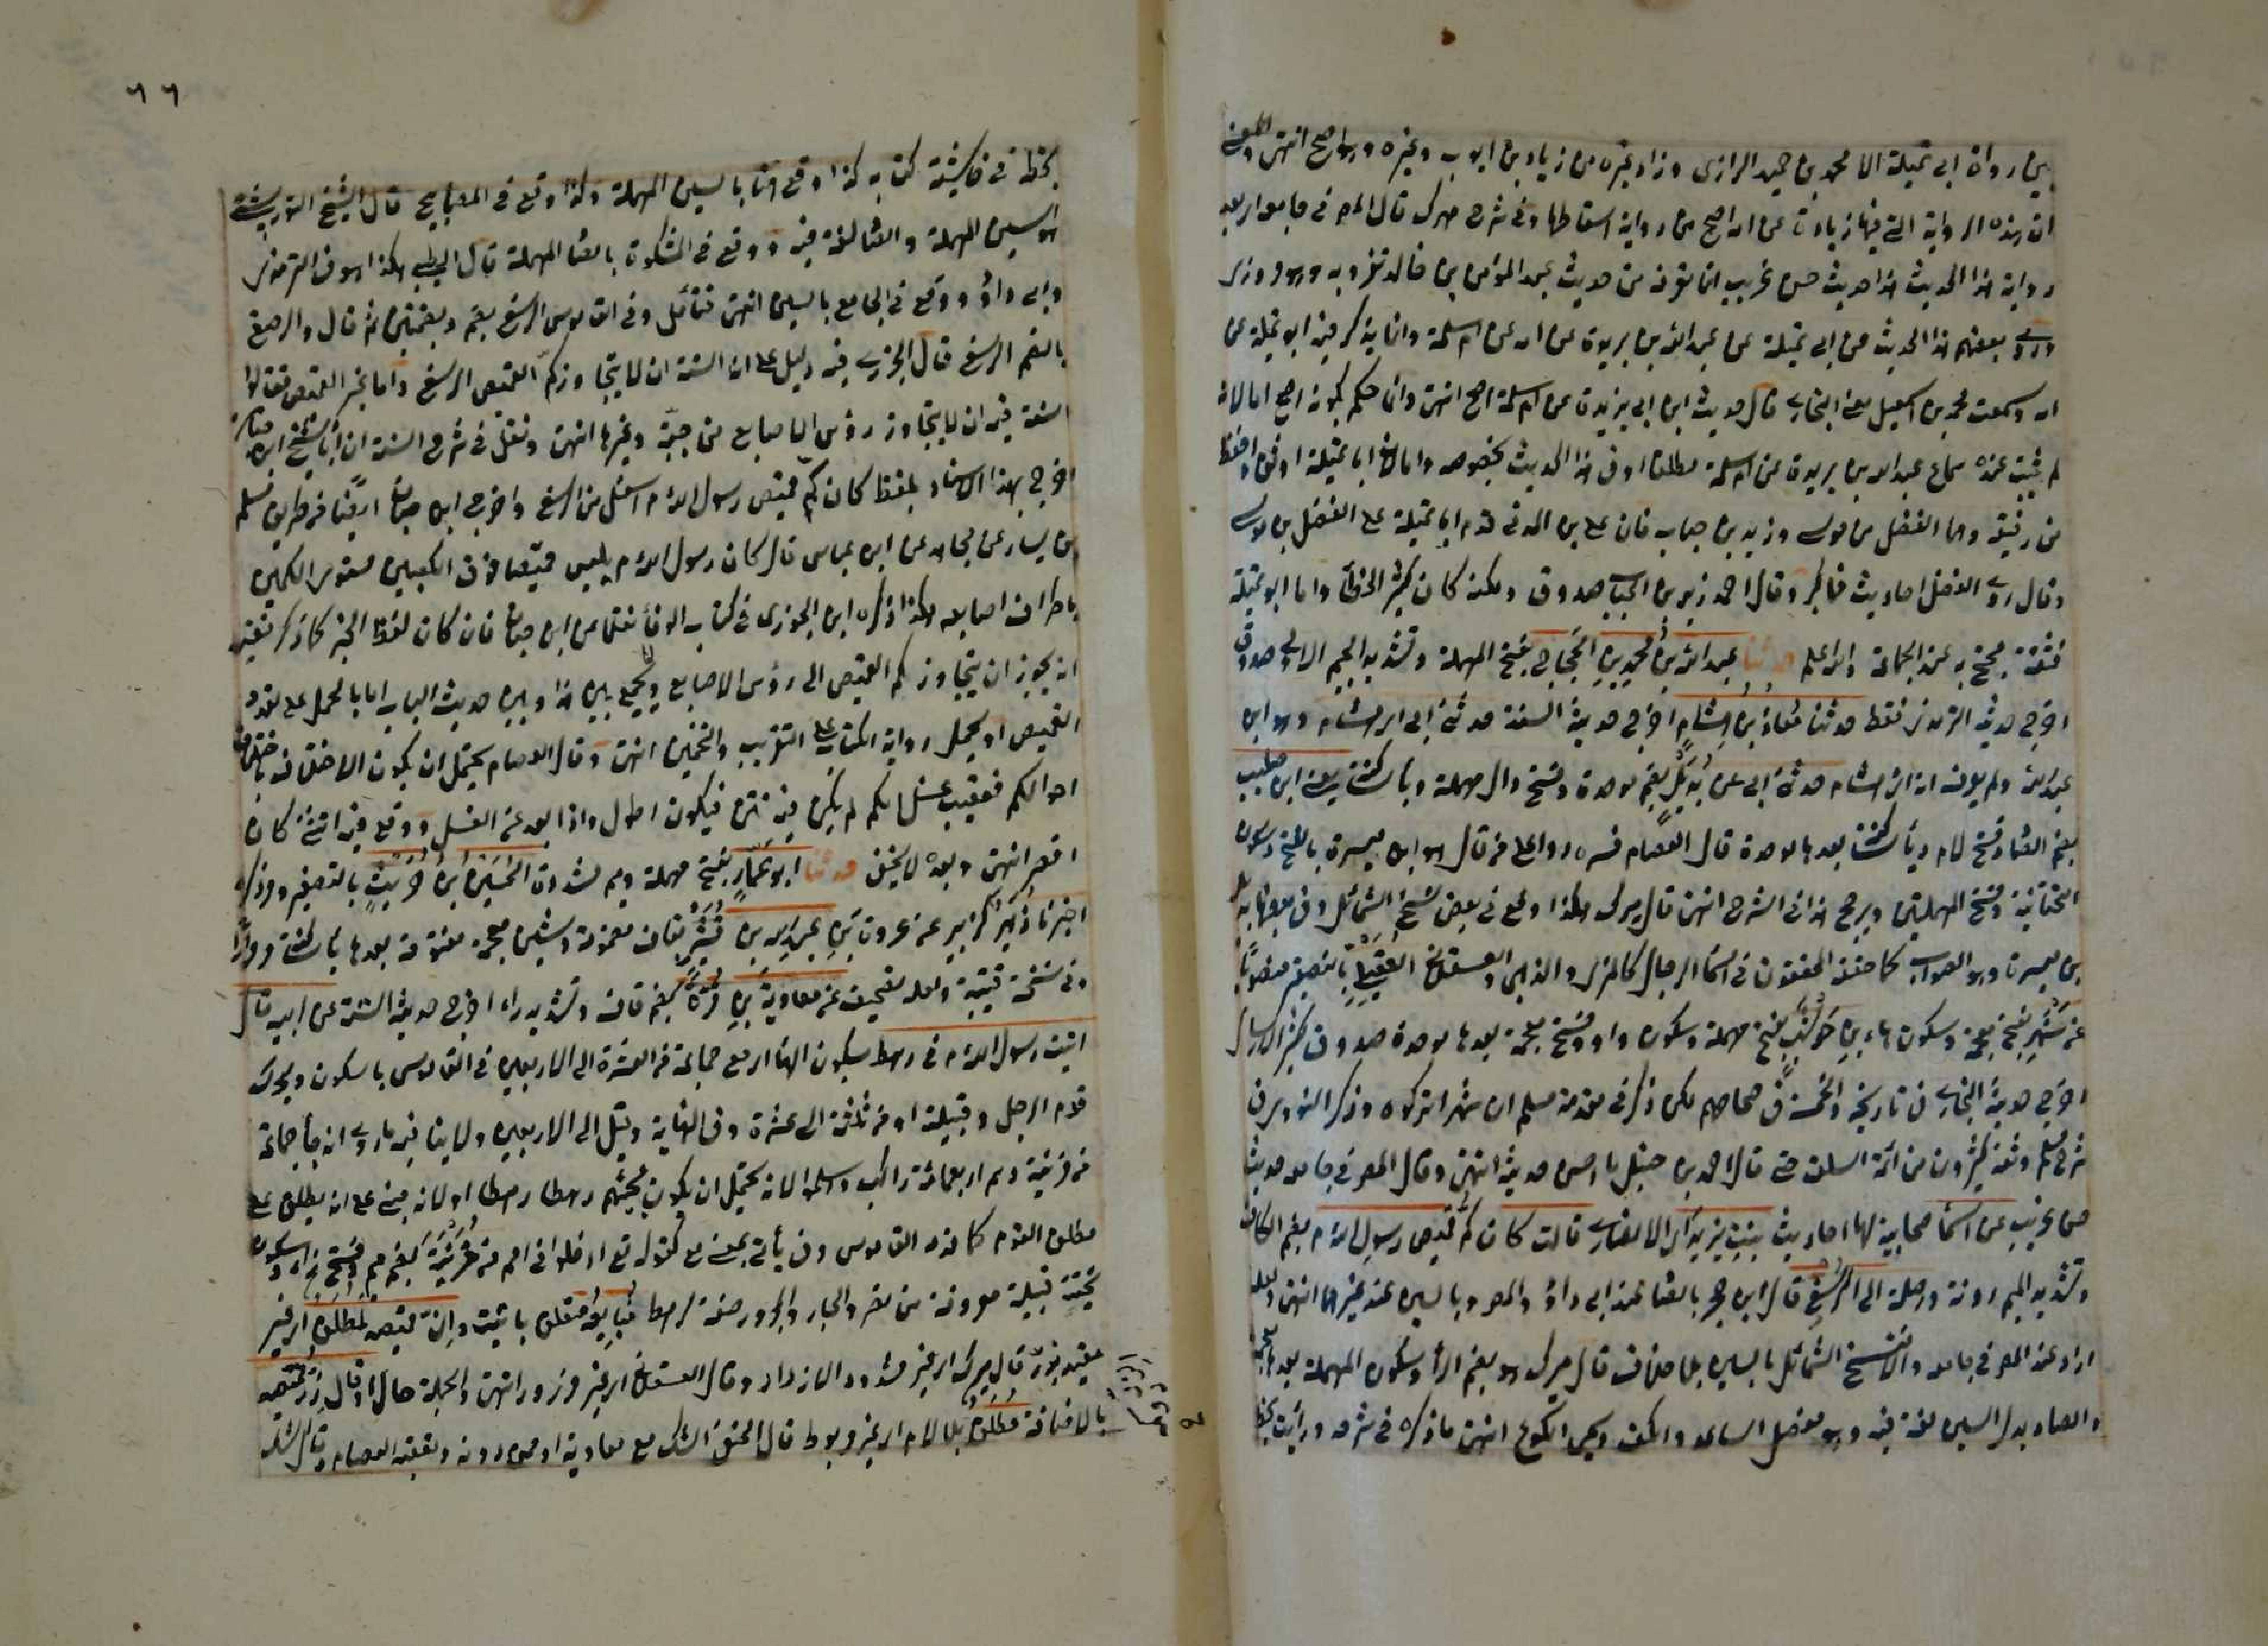 بين رواة ابى تميلة الا محمد بن حميد الرازى وزاد غيره من زياد بن ايوب وغيره وهو اصح انتهى والمعنى
ان هذه الرواية التى فيها زيادة عن امه اصح من رواية اسقاطها وفى شرح ميرك قال المص فى جامعه بعد
رواية هذا الحديث هذا حديث حسن غريب انما نعرفه من حديث عبد المؤمن بن خالد تفرد به وهو مروزى
وروى بعضهم هذا الحديث عن ابى تميلة عن عبد الله بن بريدة عن امه عن ام سلمة وانما يذكر فيه ابو تميلة عن
امه وسمعت محمد بن اسمعيل يعنى البخارى قال حديث ابن بريدة عن ام سلمة اصح انتهى وانما حكم بكونه اصح اما لانه
لم يثبت عنده سماع عبد الله بن بريدة من ام سلمة مطلقا او فى هذا الحديث بخصوصه واما لان ابا تميلة اوثق واحفظ
من رفيقيه وهما الفضل بن موسى وزيد بن حباب فان على بن المدينى قدم ابا تميلة على الفضل بن موسى
وقال روى الفضل احاديث مناكير وقال احمد زيد بن الحباب صدوق ولكنه كان كثير الخطأ واما ابو تميلة
فثقة محتج به عند الجماعة والله اعلم حدثنا عبد الله بن محمد بن الحجاج بفتح المهملة وتشديد الجيم الاولى صدوق
اخرج حديثه الترمذى فقط حدثنا معاذ بن هشام اخرج حديثه الستة حدثنى ابى اى هشام وهو ابن
عبد الله ولم يعرف انه ابن هشام حدثنى ابى عن بديل بضم موحدة وفتح دال مهملة وياء ساكنة يعنى ابن صليب
بضم الصاد وفتح لام وياء ساكنة بعدها موحدة قال العصام فسره رد اعلى من قال هو ابن ميسرة بالفتح وسكون
التحتانية وفتح المهملتين ويرجح هذا فى الشرح انتهى قال ميرك هكذا وقع فى بعض نسخ الشمائل وفى بعضها بديل
بن ميسرة وهو الصواب كما حققه المحققون فى اسماء الرجال كالمزى والذهبى والعسقلانى العقيلى بالتصغير منصوبا
عن شهر بفتح معجمة وسكون هاء بن حوشب بفتح مهملة وسكون واو وفتح معجمة بعدها موحدة صدوق كثير الارسال
اخرج حديثه البخارى فى تاريخه والخمسة فى صحاحهم لكن ذكر فى مقدمة مسلم ان شهرا تركوه وذكر النووى فى
شرح مسلم وثقه كثيرون من ائمة السلف حتى قال احمد بن حنبل ما احسن حديثه انتهى وقال المص فى جامعه حديث
حسن غريب عن اسماء صحابية لها احاديث بنت يزيد اى الانصارى قالت كان كم قميص رسول الله م بضم الكاف
وتشديد الميم ردنه واصله الى الرسغ قال ابن حجر بالصاد عند ابى داؤد والمص وبالسين عند غيرهما انتهى ولعله
اراد عند المص فى جامعه والا فنسخ الشمائل بالسين بلا خلاف قال ميرك هو بضم الراء وسكون المهملة بعدها معجمة
والصاد بدل السين لغة فيه وهو مفصل الساعد والكف ويسمى الكوع انتهى ما ذكره فى شرحه ورأيت بخطه
٦٦
بخطه فى حاشيته كتابه كذا وقع هنا بالسين المهملة وكذا وقع فى المصابيح قال الشيخ التوربشتى
هو السين المهملة والصاد لغة فيه ووقع فى المشكوة بالصاد المهملة قال الطيبى هكذا هو فى الترمذى
وابى داؤد ووقع فى الجامع بالسين انتهى فتأمل وفى القاموس الرسغ بضم وبضمتين ثم قال والرصغ
بالضم الرسغ قال الجزرى فيه دليل على ان السنة ان لا يتجاوز كم القميص الرسغ واما غير القميص فقالوا
السنة فيه ان لا يتجاوز رؤس الاصابع من جبة وغيرها انتهى ونقل فى شرح السنة ان ابا الشيخ ابن حبان
اخرج بهذا الاسناد بلفظ كان كم قميص رسول الله م اسفل من الرسغ واخرج ابن حبان ايضا من طريق مسلم
بن يسار عن مجاهد عن ابن عباس قال كان رسول الله م يلبس قميصا فوق الكعبين مستوى الكمين
باطراف اصابعه هكذا ذكره ابن الجوزى فى كتاب الوفاء نقلا عن ابن حبان فان كان لفظ الخبر كما ذكر ففيه
انه يجوز ان يتجاوز كم القميص الى رؤس الاصابع ويجمع بين هذا وبين حديث الباب اما بالحمل على تعدد
القميص او يحمل رواية الكتاب على التقريب والتخمين انتهى وقال العصام يحتمل ان يكون الاختلاف باختلاف
احوال الكم فعقيب غسل الكم لم يكن فيه تثن فيكون اطول واذا بعد عن الغسل ووقع فيه التثنى كان
اقصر انتهى وبعده لا يخفى حدثنا ابو عمار بفتح مهملة وميم مشددة الحسين بن حريث بالتصغير وذكره
اخبرنا زهير كزبير عن عروة بن عبد الله بن قشير بقاف مضمومة وشين معجمة مفتوحة بعدها ياء ساكنة وراء
وفى نسخة قتيبة ولعله تصحيف عن معاوية بن قرة بضم قاف وتشديد راء اخرج حديثه الستة عن ابيه قال
اتيت رسول الله م فى رهط بسكون الهاء اى مع جماعة من العشرة الى الاربعين فى القاموس بالسكون ويحرك
قوم الرجل وقبيلته او من ثلثة الى عشرة وفى النهاية وقيل الى الاربعين ولا ينافيه ما روى انه جاء جماعة
من مزينة وهم اربعمائة راكب واسلموا لانه يحتمل ان يكون مجيئهم رهطا رهطا او لانه مبنى على انه يطلق على
مطلق القوم كما قدمه القاموس وفى يأتى بمعنى مع كقوله تع ادخلوا فى امم من مزينة بضم ميم وفتح زاى وسكون
تحتية قبيلة معروفة من مضر والجار والمجرور صفة لرهط لنبايعه متعلق باتيت وان قميصه لمطلق اى غير
مقيد بزر قال ميرك اى غير مشدود الازرار وقال العسقلانى اى غير مزرور انتهى والجملة حال او قال زر قميصه
بالاضافة مطلق بلا لام اى غير مربوط قال الحنفى الشك مع معاوية او ممن دونه وتعقبه العصام وقال الشك